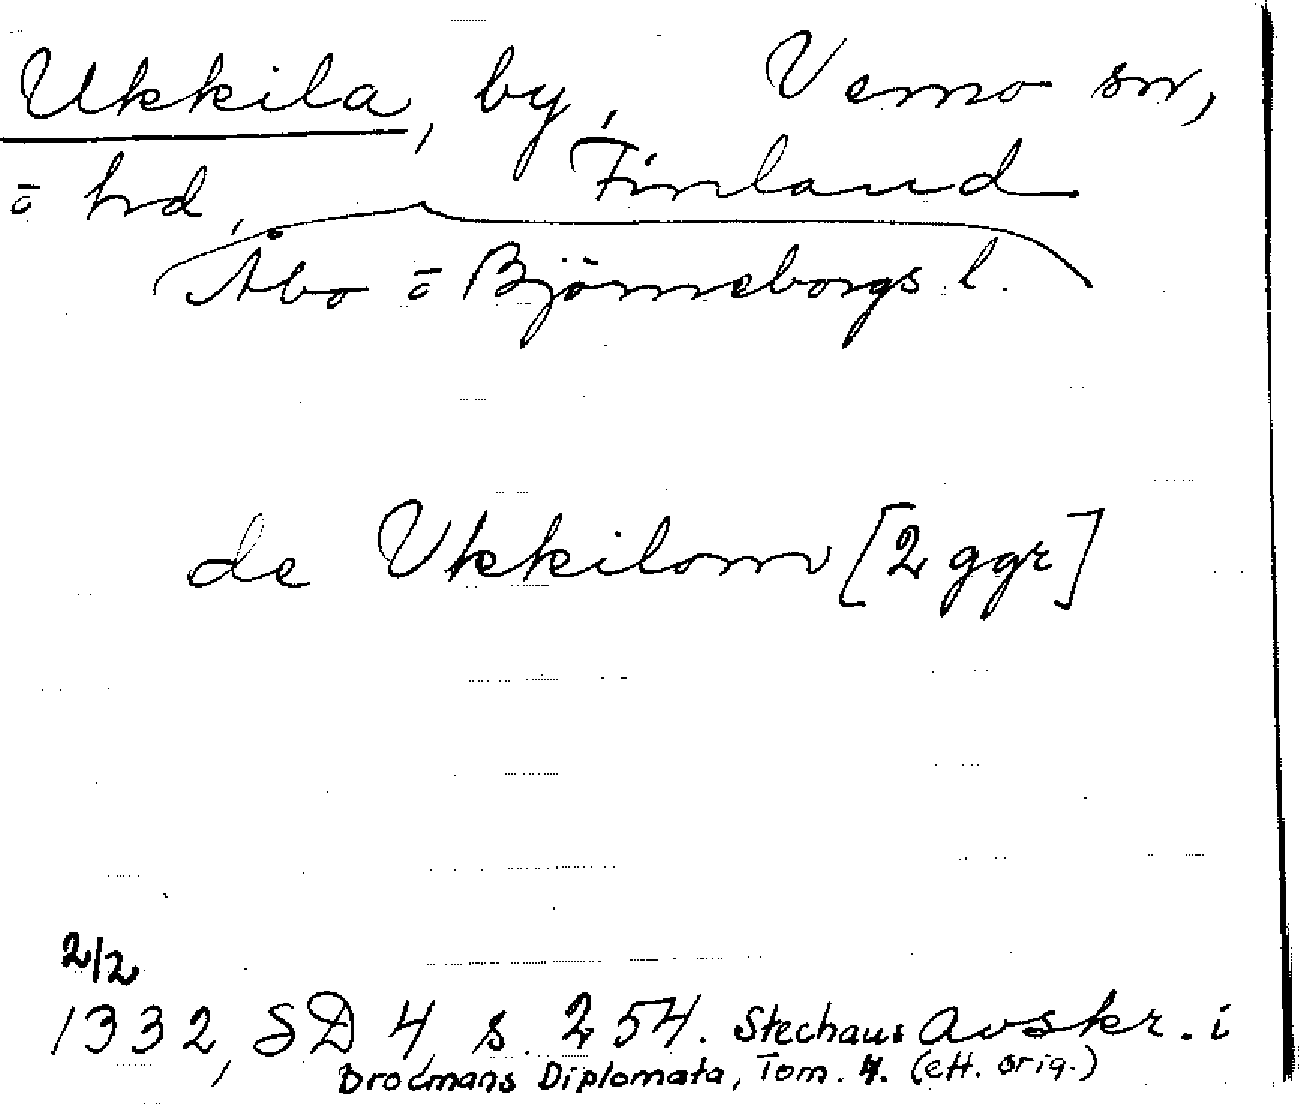 Ukkila, by, Vemo sn,
o hrd, Finland
Åbo o Björneborgs l.
de Vkkilom [2 ggr]
2/2
1332, SD 4, s. 254. Stechaus Avskr. i
Brocmans Diplomata, Tom. 4. (eft. orig.)